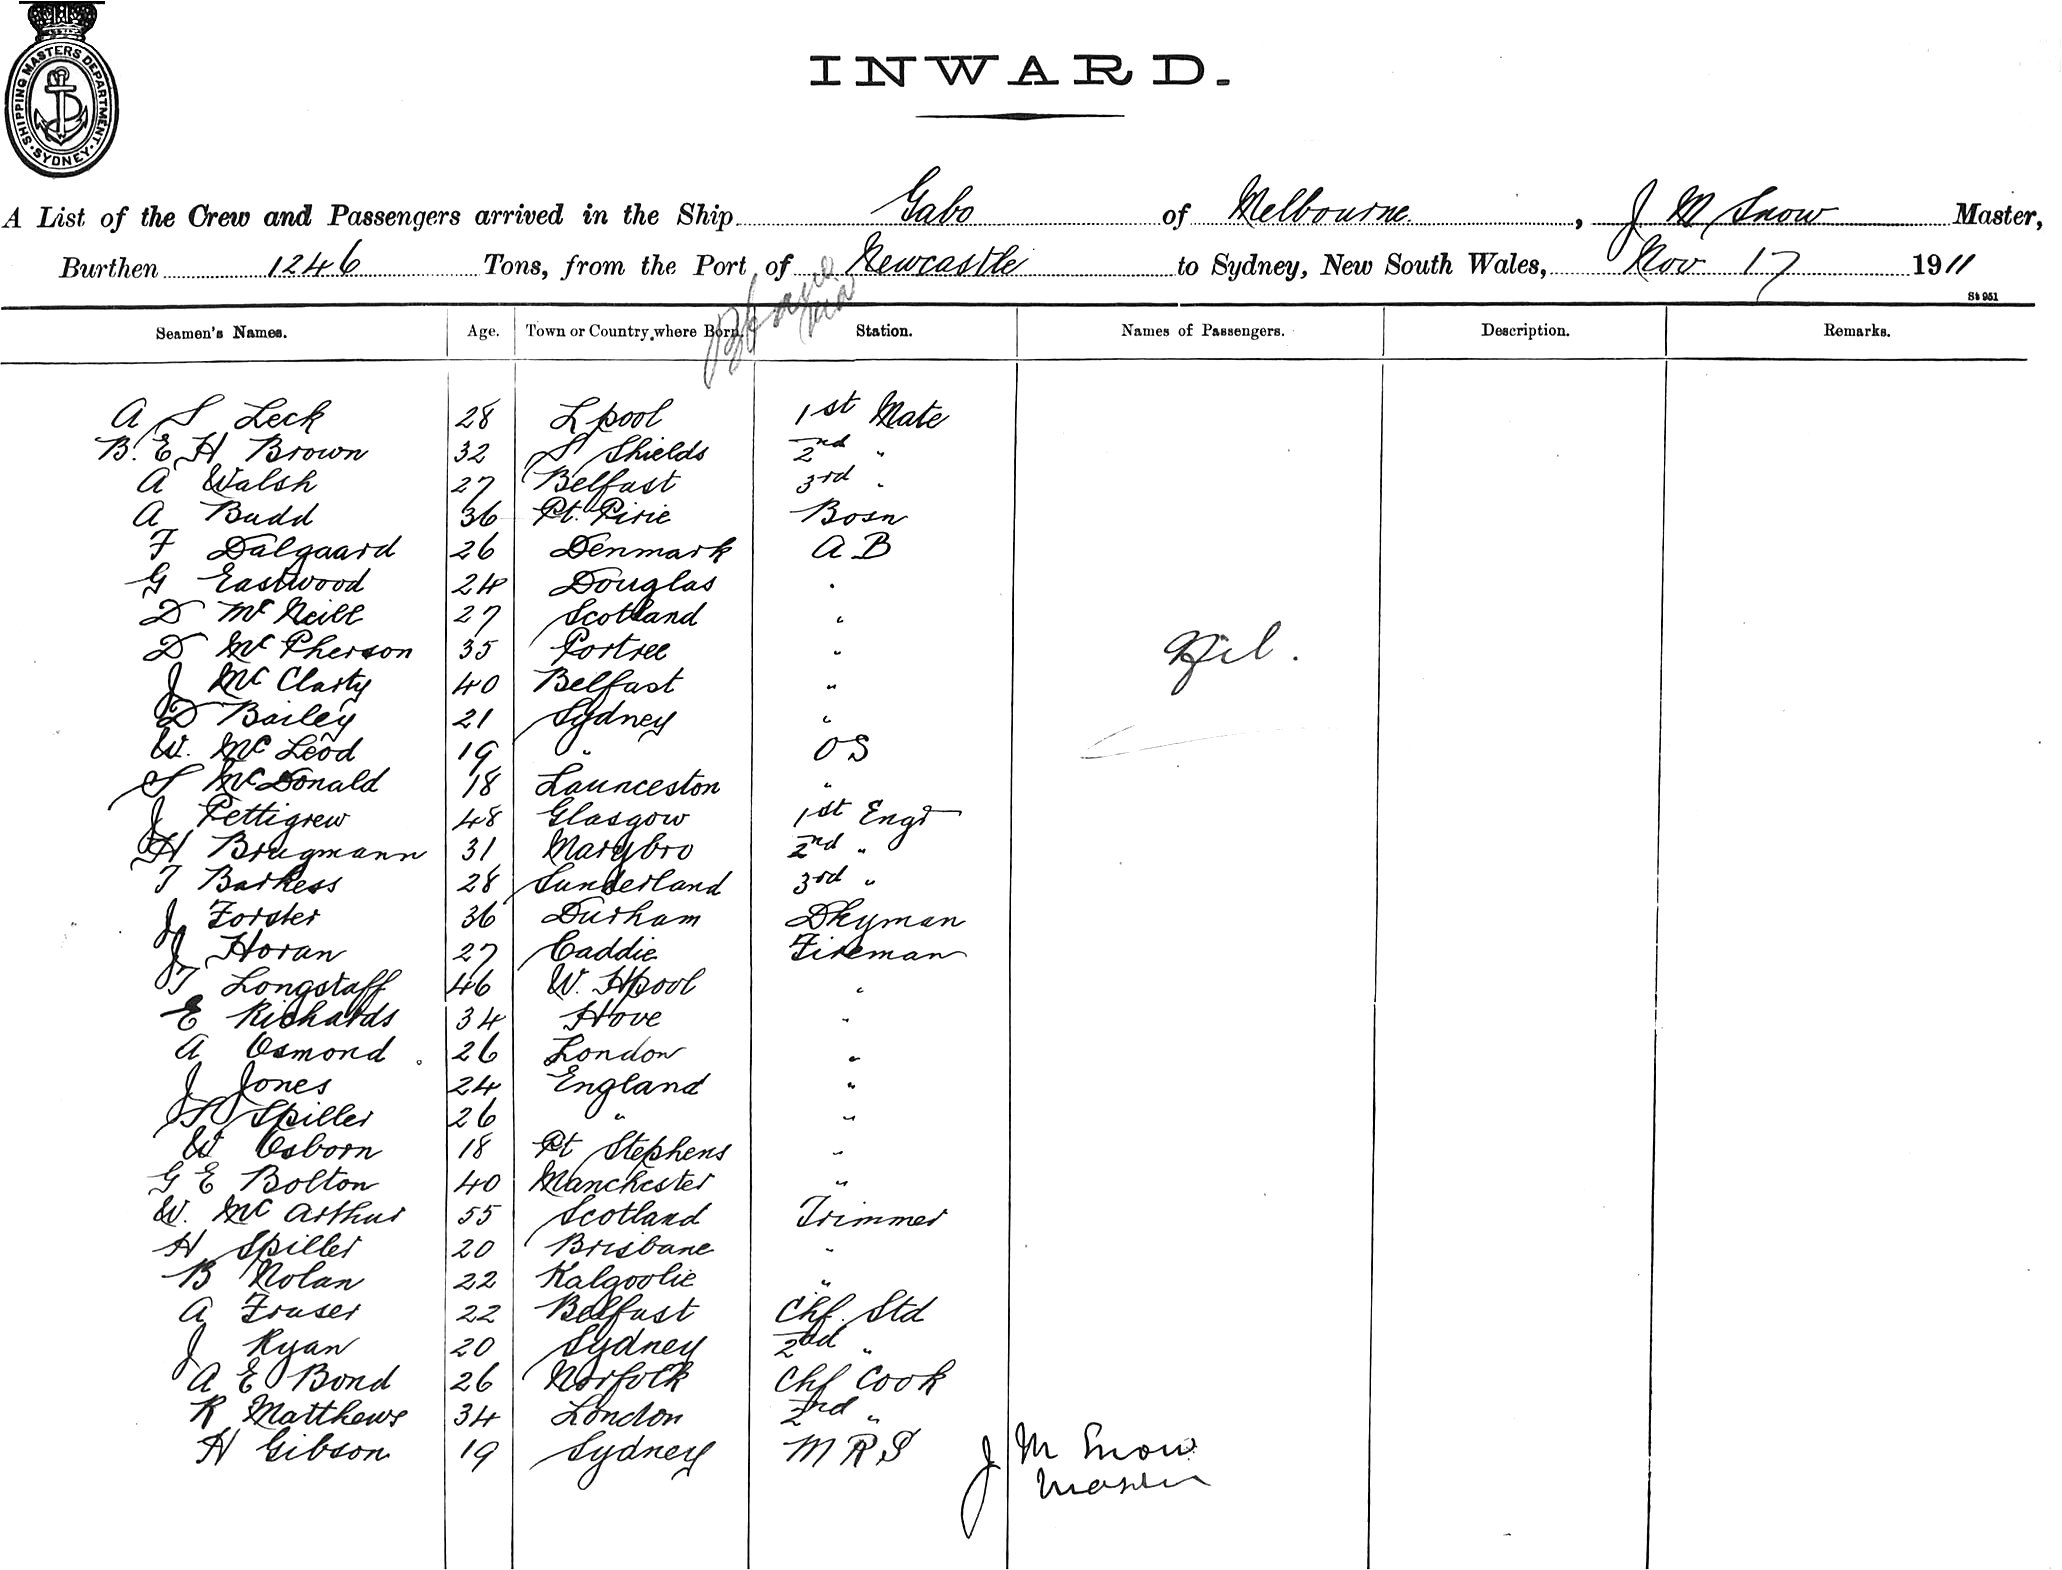 SHIPPING MASTERS DEPARTMENT
SYDNEY
INWARD.
A List of the Crew and Passengers arrived in the Ship Gabo of Melbourne, J M Snow Master,
Burthen 1246 Tons, from the Port of Newcastle to Sydney, New South Wales, Nov 17 1911
St 951
Seamen's Names. Age. Town or Country where Born. Station. Names of Passengers. Description. Remarks.
A S Leck 28 L'pool 1st Mate
B. E H Brown 32 S Shields 2nd "
A Walsh 27 Belfast 3rd "
A Budd 36 Pt. Pirie Bosn
F Dalgaard 26 Denmark A B
G Eastwood 24 Douglas "
D McNeill 27 Scotland "
D McPherson 35 Portree "
Nil.
J McClarty 40 Belfast "
D Bailey 21 Sydney "
W. McLeod 19 " O S
S McDonald 18 Launceston "
J Pettigrew 48 Glasgow 1st Engr
H Brugmann 31 Marybro 2nd "
T Barkess 28 Sunderland 3rd "
J Forster 36 Durham Dkyman
J Horan 27 Caddie Fireman
T Longstaff 46 W. H'pool "
E Richards 34 Hove "
A Osmond 26 London "
J Jones 24 England "
S Spiller 26 " "
W Osborn 18 Pt Stephens "
G E Bolton 40 Manchester "
W. McArthur 55 Scotland Trimmer
H Spiller 20 Brisbane "
B Nolan 22 Kalgoolie "
A Fraser 22 Belfast Chf. Std
J Ryan 20 Sydney 2nd "
A E Bond 26 Norfolk Chf Cook
R Matthews 34 London 2nd "
H Gibson 19 Sydney M R S
J M Snow
Master